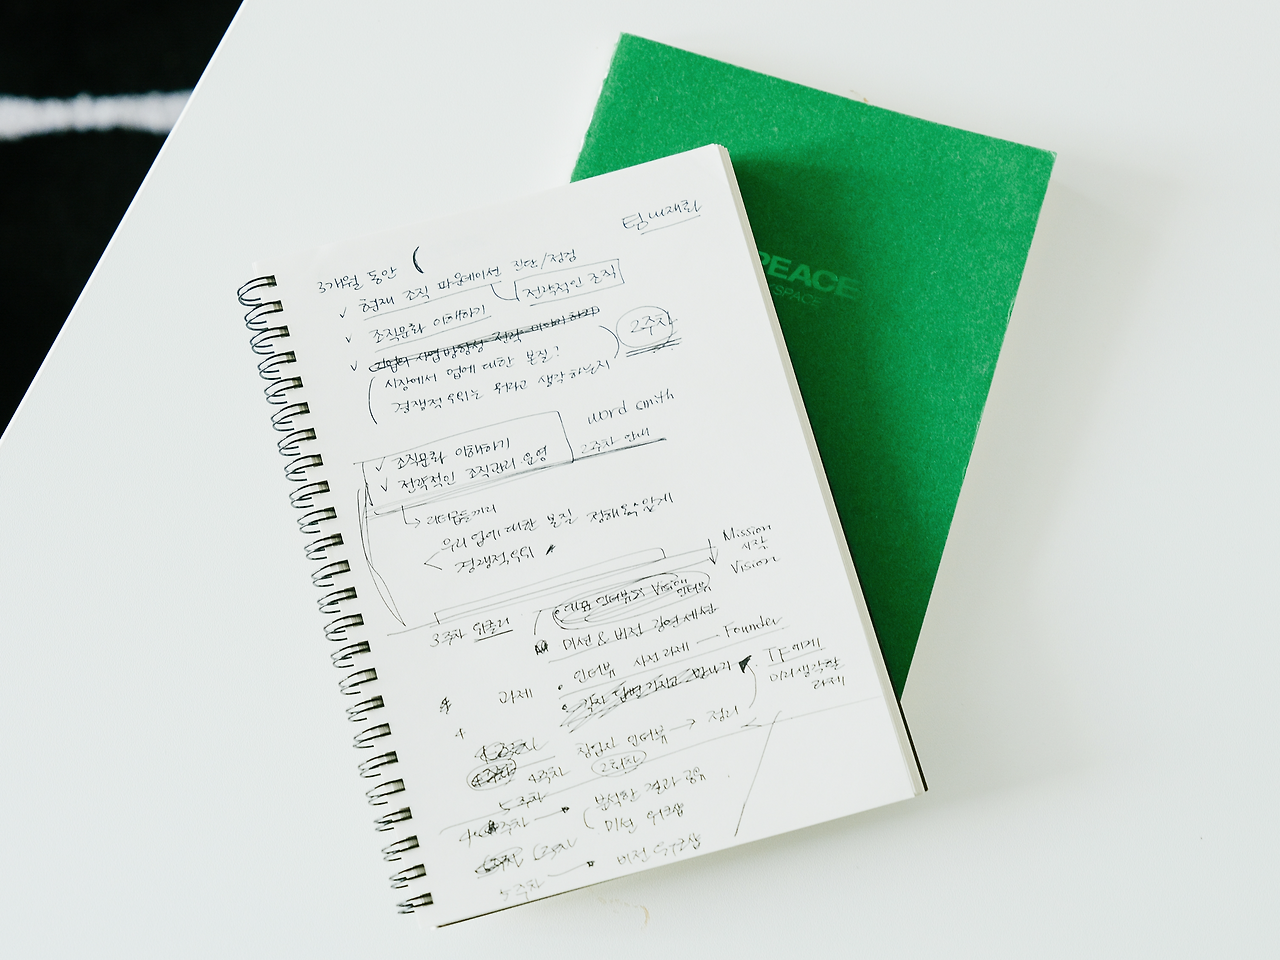 팀내재화
3개월 동안
✓ 현재 조직 파운데이션 진단/점검
전략적인 조직
✓ 조직문화 이해하기
✓ 기업의 사업방향성 전략 이해하기
2주차
시장에서 업에 대한 본질?
경쟁적 우위는 뭐라고 생각하는지
word smith
2주차 안내
✓ 조직문화 이해하기
✓ 전략적인 조직관리 운영
→ 리더분들끼리
우리 업에 대한 본질
경쟁적우위
Mission
시작
Vision
3주차 위클리
Vision 인터뷰
미션 & 비전 강연세션
인터뷰 사전과제 — Founder
과제
TF에게
미리생각할
과제
창업자 인터뷰 → 정리
4주차 2회차
5주차
분석한 결과 공유
미션 워크샵
5주차 → 비전 워크샵
PEACE